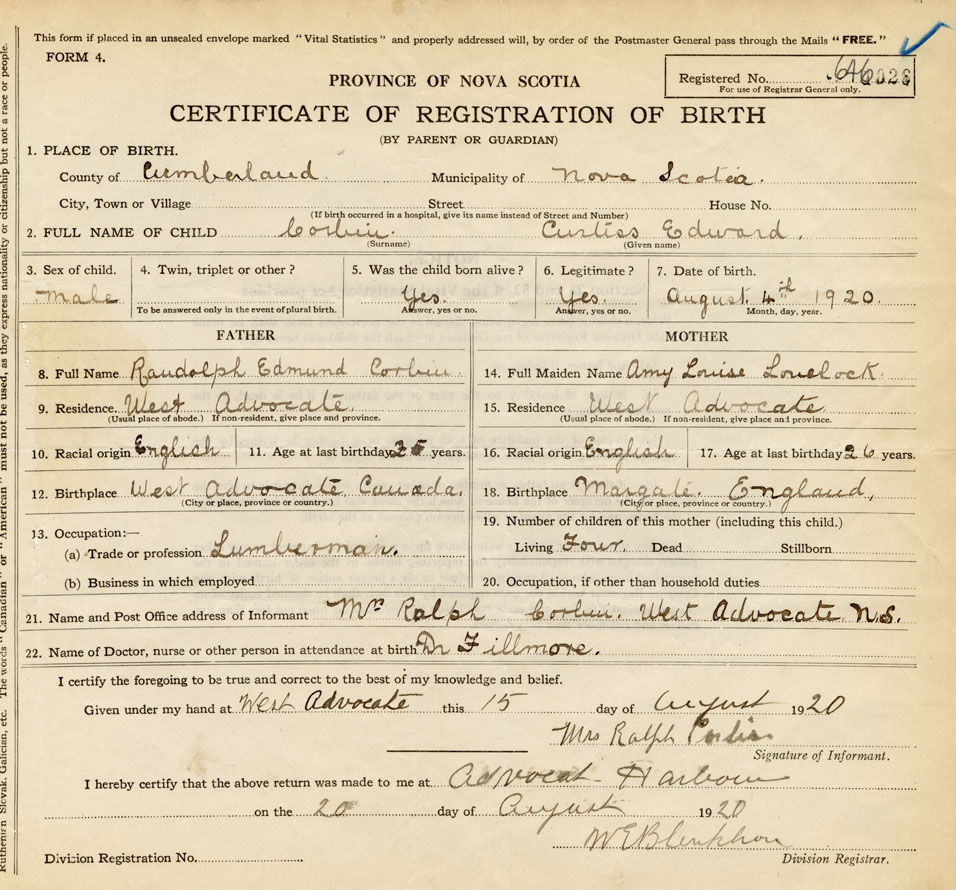 This form if placed in an unsealed envelope marked "Vital Statistics" and properly addressed will, by order of the Postmaster General pass through the Mails "FREE."
FORM 4.
Registered No.
For use of Registrar General only.
PROVINCE OF NOVA SCOTIA
CERTIFICATE OF REGISTRATION OF BIRTH
(BY PARENT OR GUARDIAN)
1. PLACE OF BIRTH.
County of Cumberland. Municipality of Nova Scotia.
City, Town or Village Street House No.
(If birth occurred in a hospital, give its name instead of Street and Number)
2. FULL NAME OF CHILD Corbin. Curtiss Edward.
(Surname) (Given name)
3. Sex of child. 4. Twin, triplet or other? 5. Was the child born alive? 6. Legitimate? 7. Date of birth.
male Yes. Yes. August 4th 1920.
To be answered only in the event of plural birth. Answer, yes or no. Answer, yes or no. Month, day, year.
FATHER
8. Full Name Randolph Edmund Corbin.
9. Residence West Advocate.
(Usual place of abode.) If non-resident, give place and province.
10. Racial origin English 11. Age at last birthday years.
12. Birthplace West Advocate Canada.
(City or place, province or country.)
13. Occupation:—
(a) Trade or profession Lumberman.
(b) Business in which employed
MOTHER
14. Full Maiden Name Amy Louise Lovelock.
15. Residence West Advocate
(Usual place of abode.) If non-resident, give place and province.
16. Racial origin English 17. Age at last birthday 26 years.
18. Birthplace Margate. England,
(City or place, province or country.)
19. Number of children of this mother (including this child.)
Living Four. Dead Stillborn
20. Occupation, if other than household duties
21. Name and Post Office address of Informant Mrs Ralph Corbin. West Advocate N.S.
22. Name of Doctor, nurse or other person in attendance at birth Dr Fillmore.
I certify the foregoing to be true and correct to the best of my knowledge and belief.
Given under my hand at West Advocate this 15 day of August 1920
Mrs Ralph Corbin
Signature of Informant.
I hereby certify that the above return was made to me at Advocat Harbour
on the 20 day of August 1920
Division Registration No. Division Registrar.
Ruthenian Slovak, Galician, etc. The words "Canadian" or "American" must not be used, as they express nationality or citizenship but not a race or people.